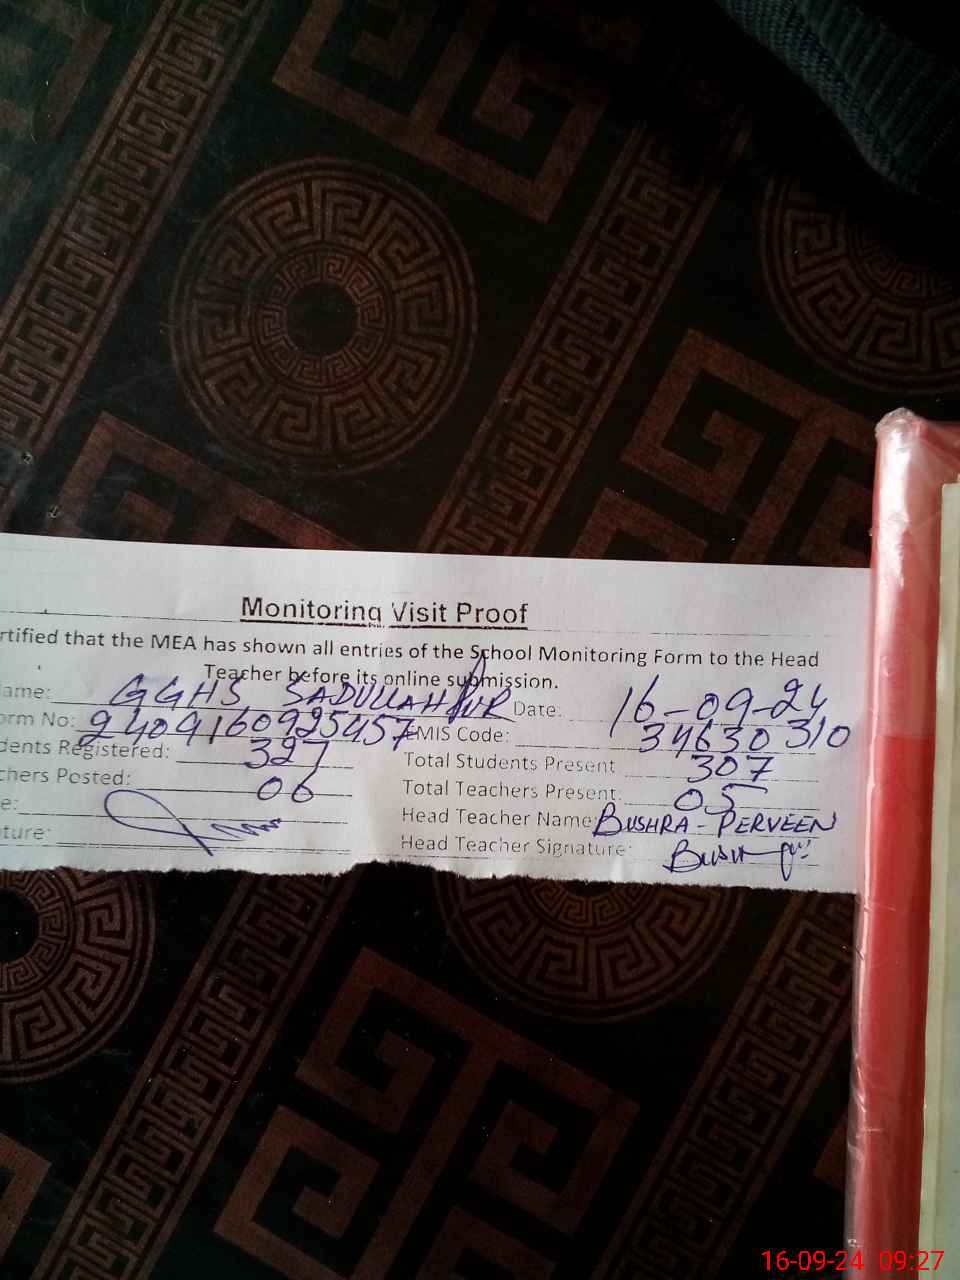 Monitoring Visit Proof
rtified that the MEA has shown all entries of the School Monitoring Form to the Head
Teacher before its online submission.
ame: GGHS SADULLAHPUR Date: 16-09-24
orm No: 2409160925457 EMIS Code: 34630310
dents Registered: 327 Total Students Present 307
chers Posted: 06 Total Teachers Present: 05
e: Head Teacher Name: BUSHRA-PERVEEN
ture: Head Teacher Signature:
16-09-24 09:27